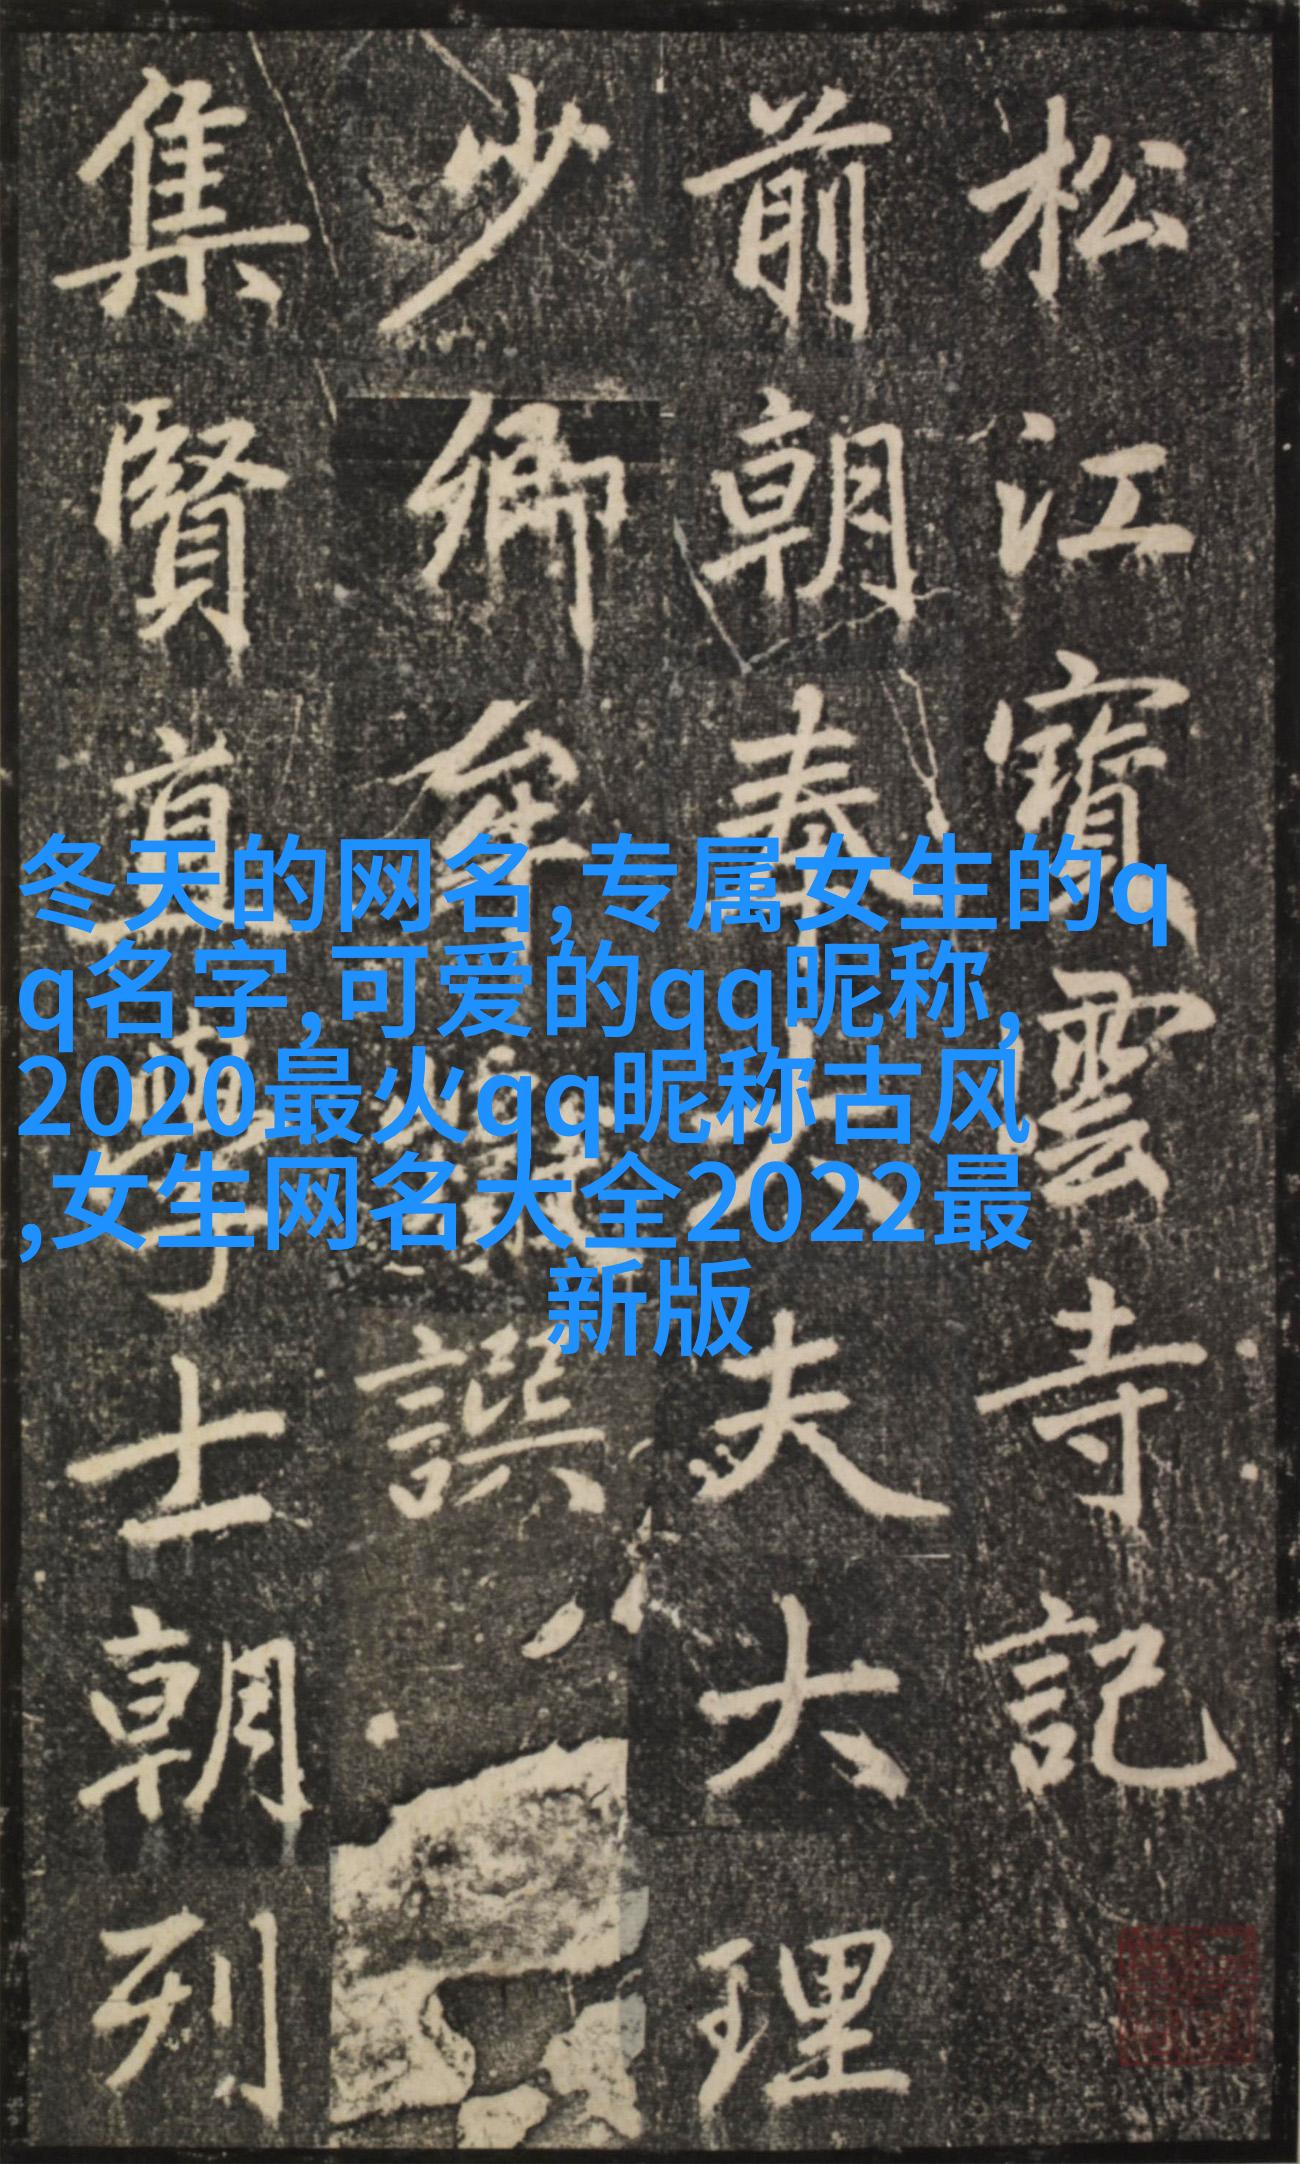 松江寶雲寺記
前朝奉大夫大理
少卿牟巘譔
集賢直學士朝列
冬天的网名,专属女生的q
q名字,可爱的qq昵称,
2020最火qq昵称古风
,女生网名大全2022最
新版